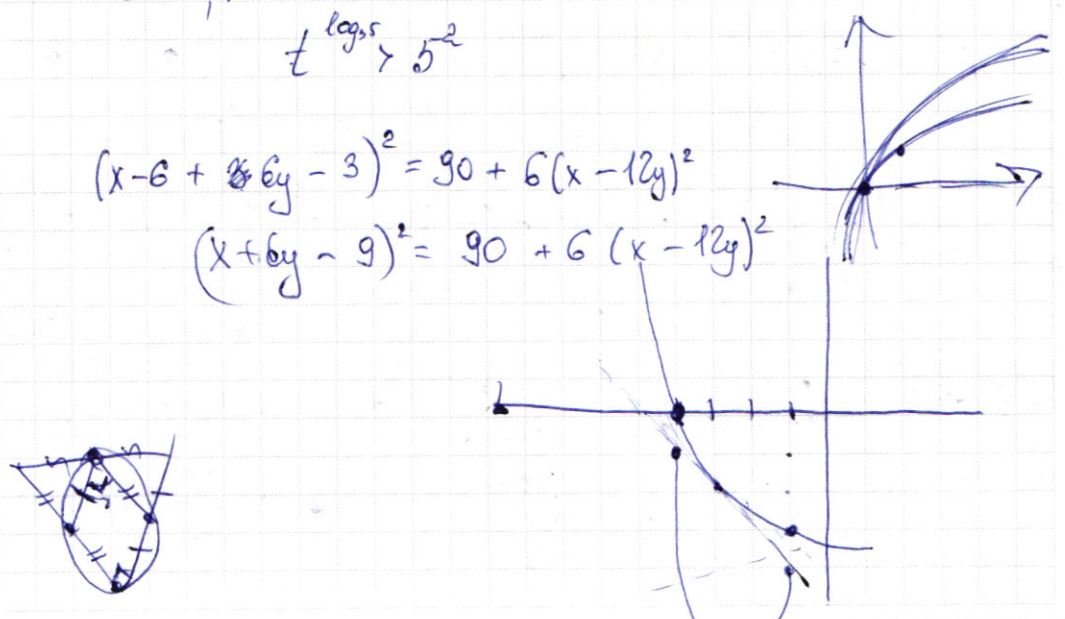 t^{log_3 5} > 5^{-2}
(x-6 + 6y - 3)^2 = 90 + 6(x - 12y)^2
(x + 6y - 9)^2 = 90 + 6 (x - 12y)^2